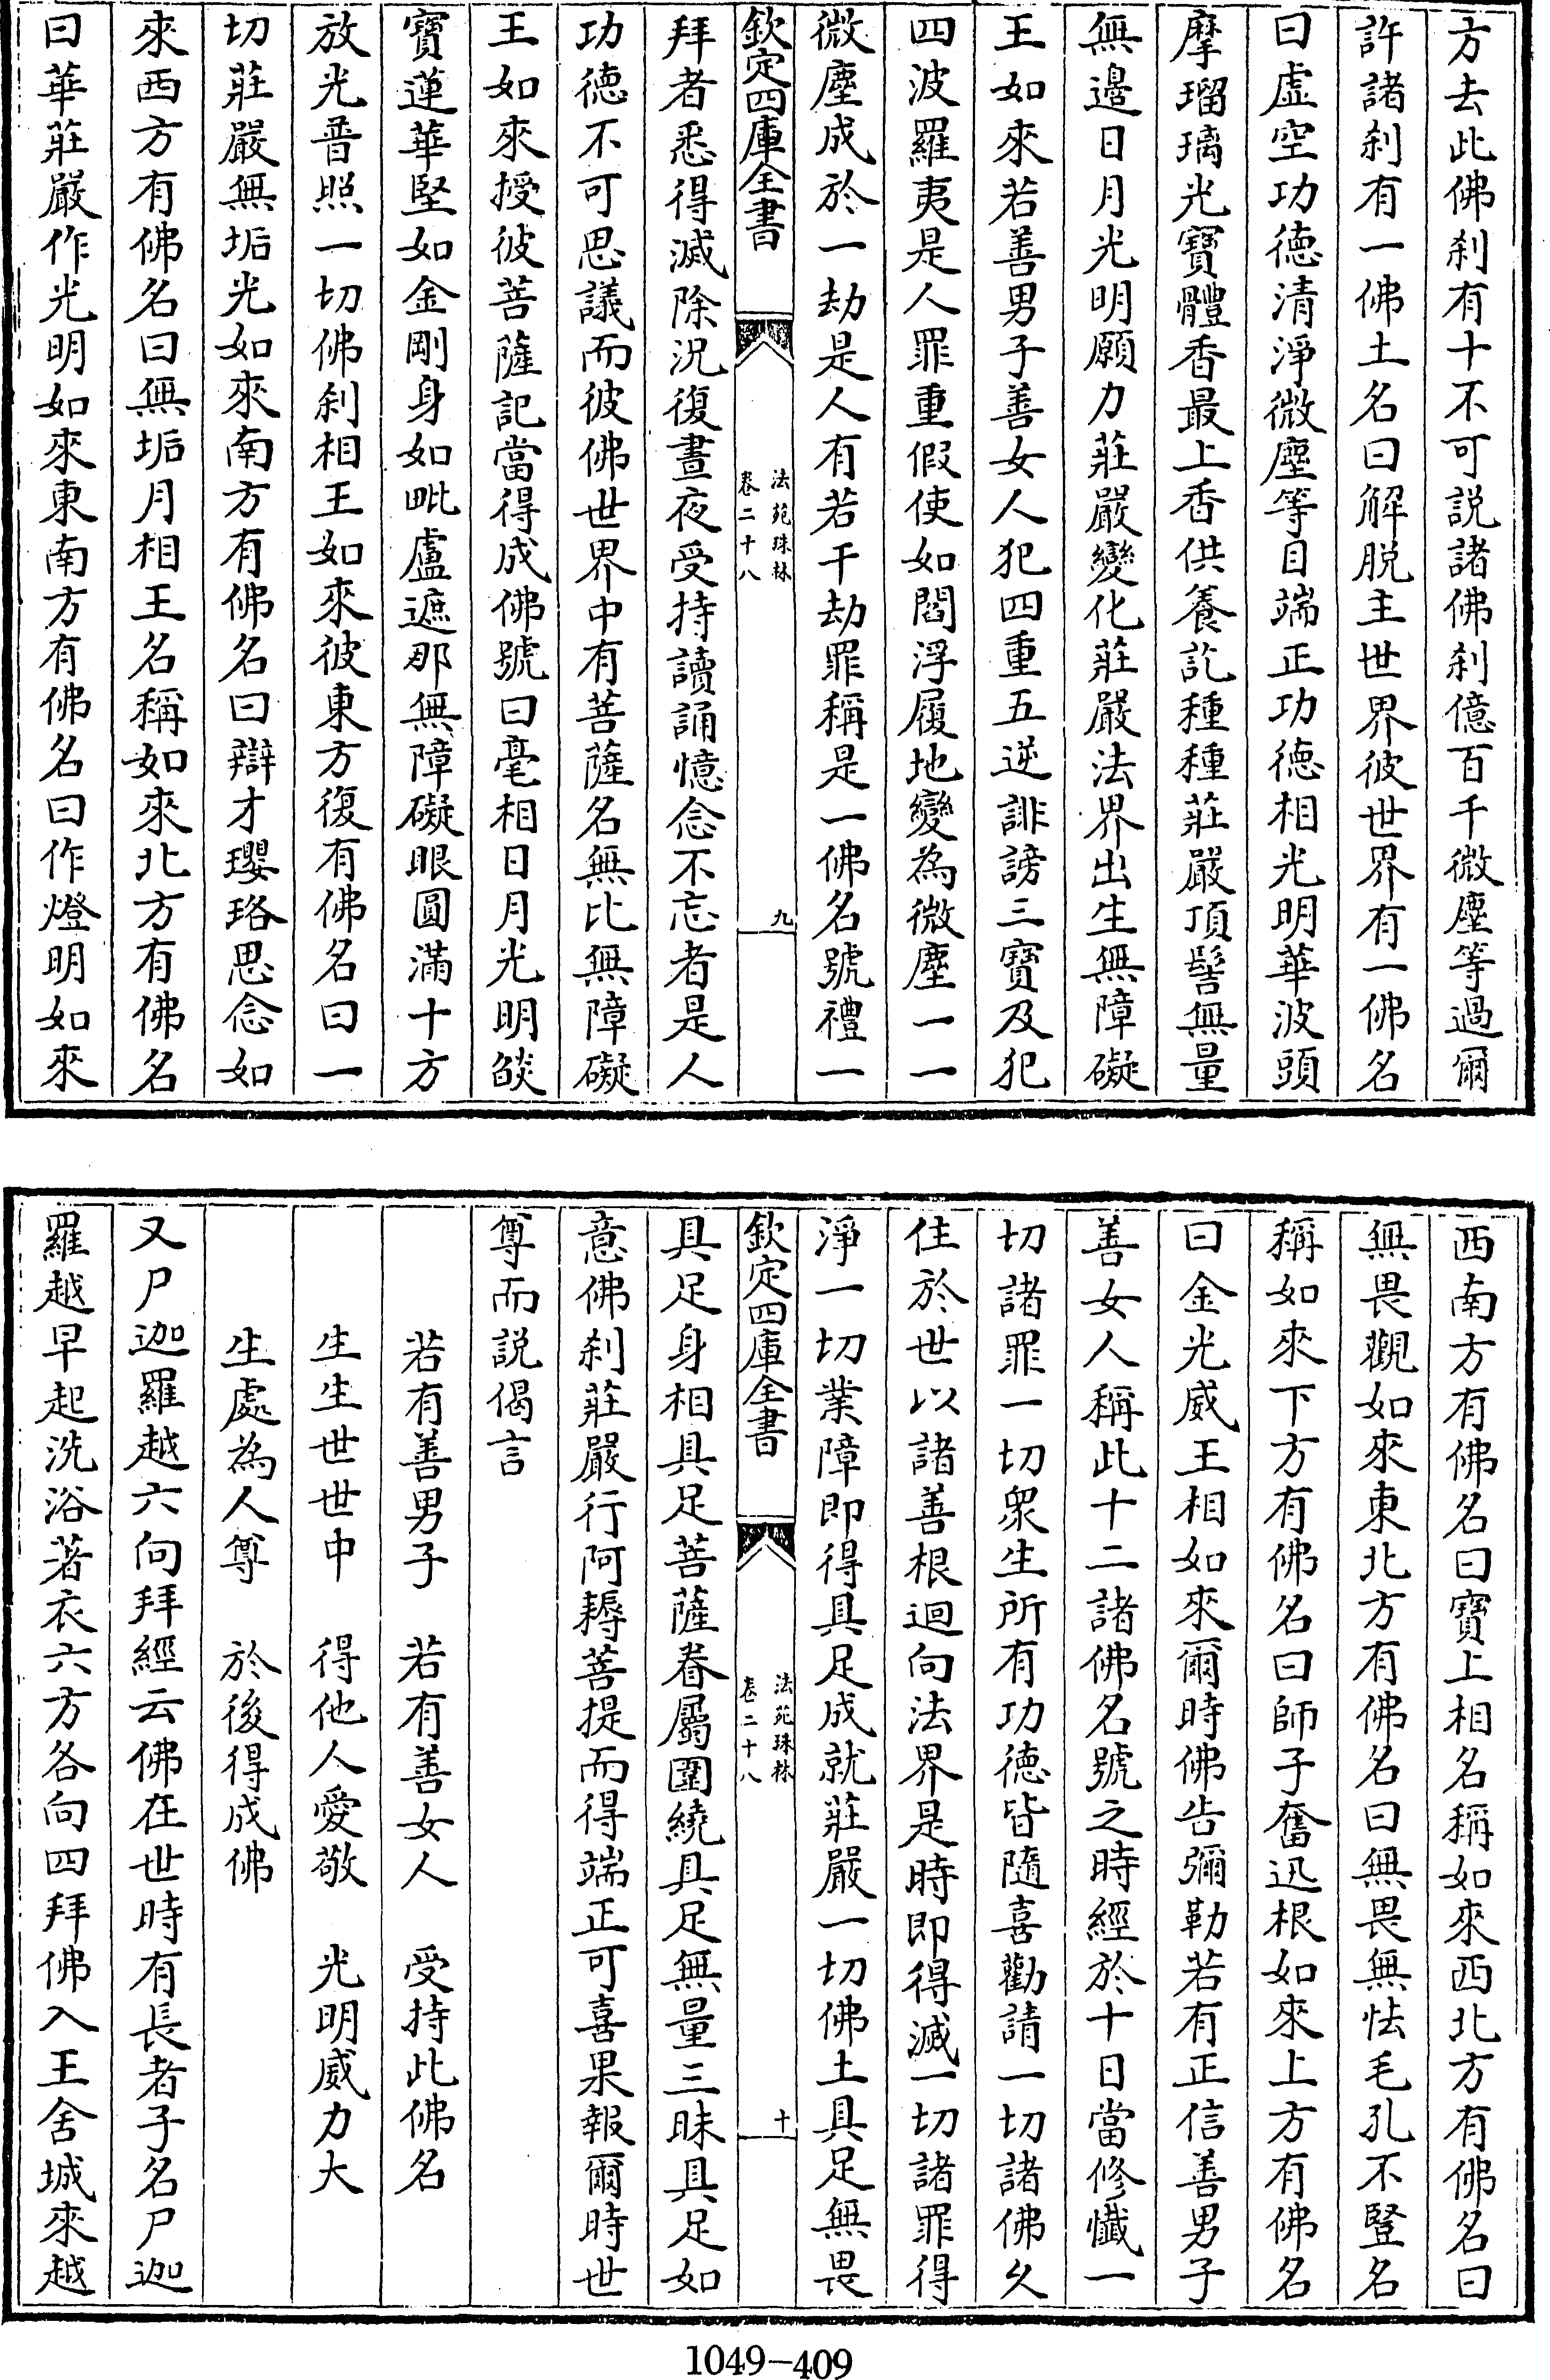 方去此佛刹有十不可説諸佛刹億百千微塵等過爾
許諸刹有一佛土名曰解脱主世界彼世界有一佛名
曰虛空功德清淨微塵等目端正功德相光明華波頭
摩瑠璃光寶體香最上香供養訖種種莊嚴頂髻無量
無邉日月光明願力莊嚴變化莊嚴法界出生無障礙
王如來若善男子善女人犯四重五逆誹謗三寶及犯
四波羅夷是人罪重假使如閻浮履地變為微塵一一
微塵成於一劫是人有若干劫罪稱是一佛名號禮一
欽定四庫全書
法苑珠林
卷二十八
九
拜者悉得滅除況復晝夜受持讀誦憶念不忘者是人
功德不可思議而彼佛世界中有菩薩名無比無障礙
王如來授彼菩薩記當得成佛號曰毫相日月光明燄
寶蓮華堅如金剛身如毗盧遮那無障礙眼圓滿十方
放光普照一切佛刹相王如來彼東方復有佛名曰一
切莊嚴無垢光如來南方有佛名曰辯才瓔珞思念如
來西方有佛名曰無垢月相王名稱如來北方有佛名
曰華莊嚴作光明如來東南方有佛名曰作燈明如來
西南方有佛名曰寶上相名稱如來西北方有佛名曰
無畏觀如來東北方有佛名曰無畏無怯毛孔不豎名
稱如來下方有佛名曰師子奮迅根如來上方有佛名
曰金光威王相如來爾時佛告彌勒若有正信善男子
善女人稱此十二諸佛名號之時經於十日當修懺一
切諸罪一切眾生所有功德皆隨喜勸請一切諸佛久
住於世以諸善根迴向法界是時即得滅一切諸罪得
淨一切業障即得具足成就莊嚴一切佛土具足無畏
欽定四庫全書
法苑珠林
卷二十八
十
具足身相具足菩薩眷屬圍繞具足無量三昧具足如
意佛刹莊嚴行阿耨菩提而得端正可喜果報爾時世
尊而説偈言
若有善男子　若有善女人　受持此佛名
生生世世中　得他人愛敬　光明威力大
生處為人尊　於後得成佛
又尸迦羅越六向拜經云佛在世時有長者子名尸迦
羅越早起洗浴著衣六方各向四拜佛入王舍城來越
1049-409